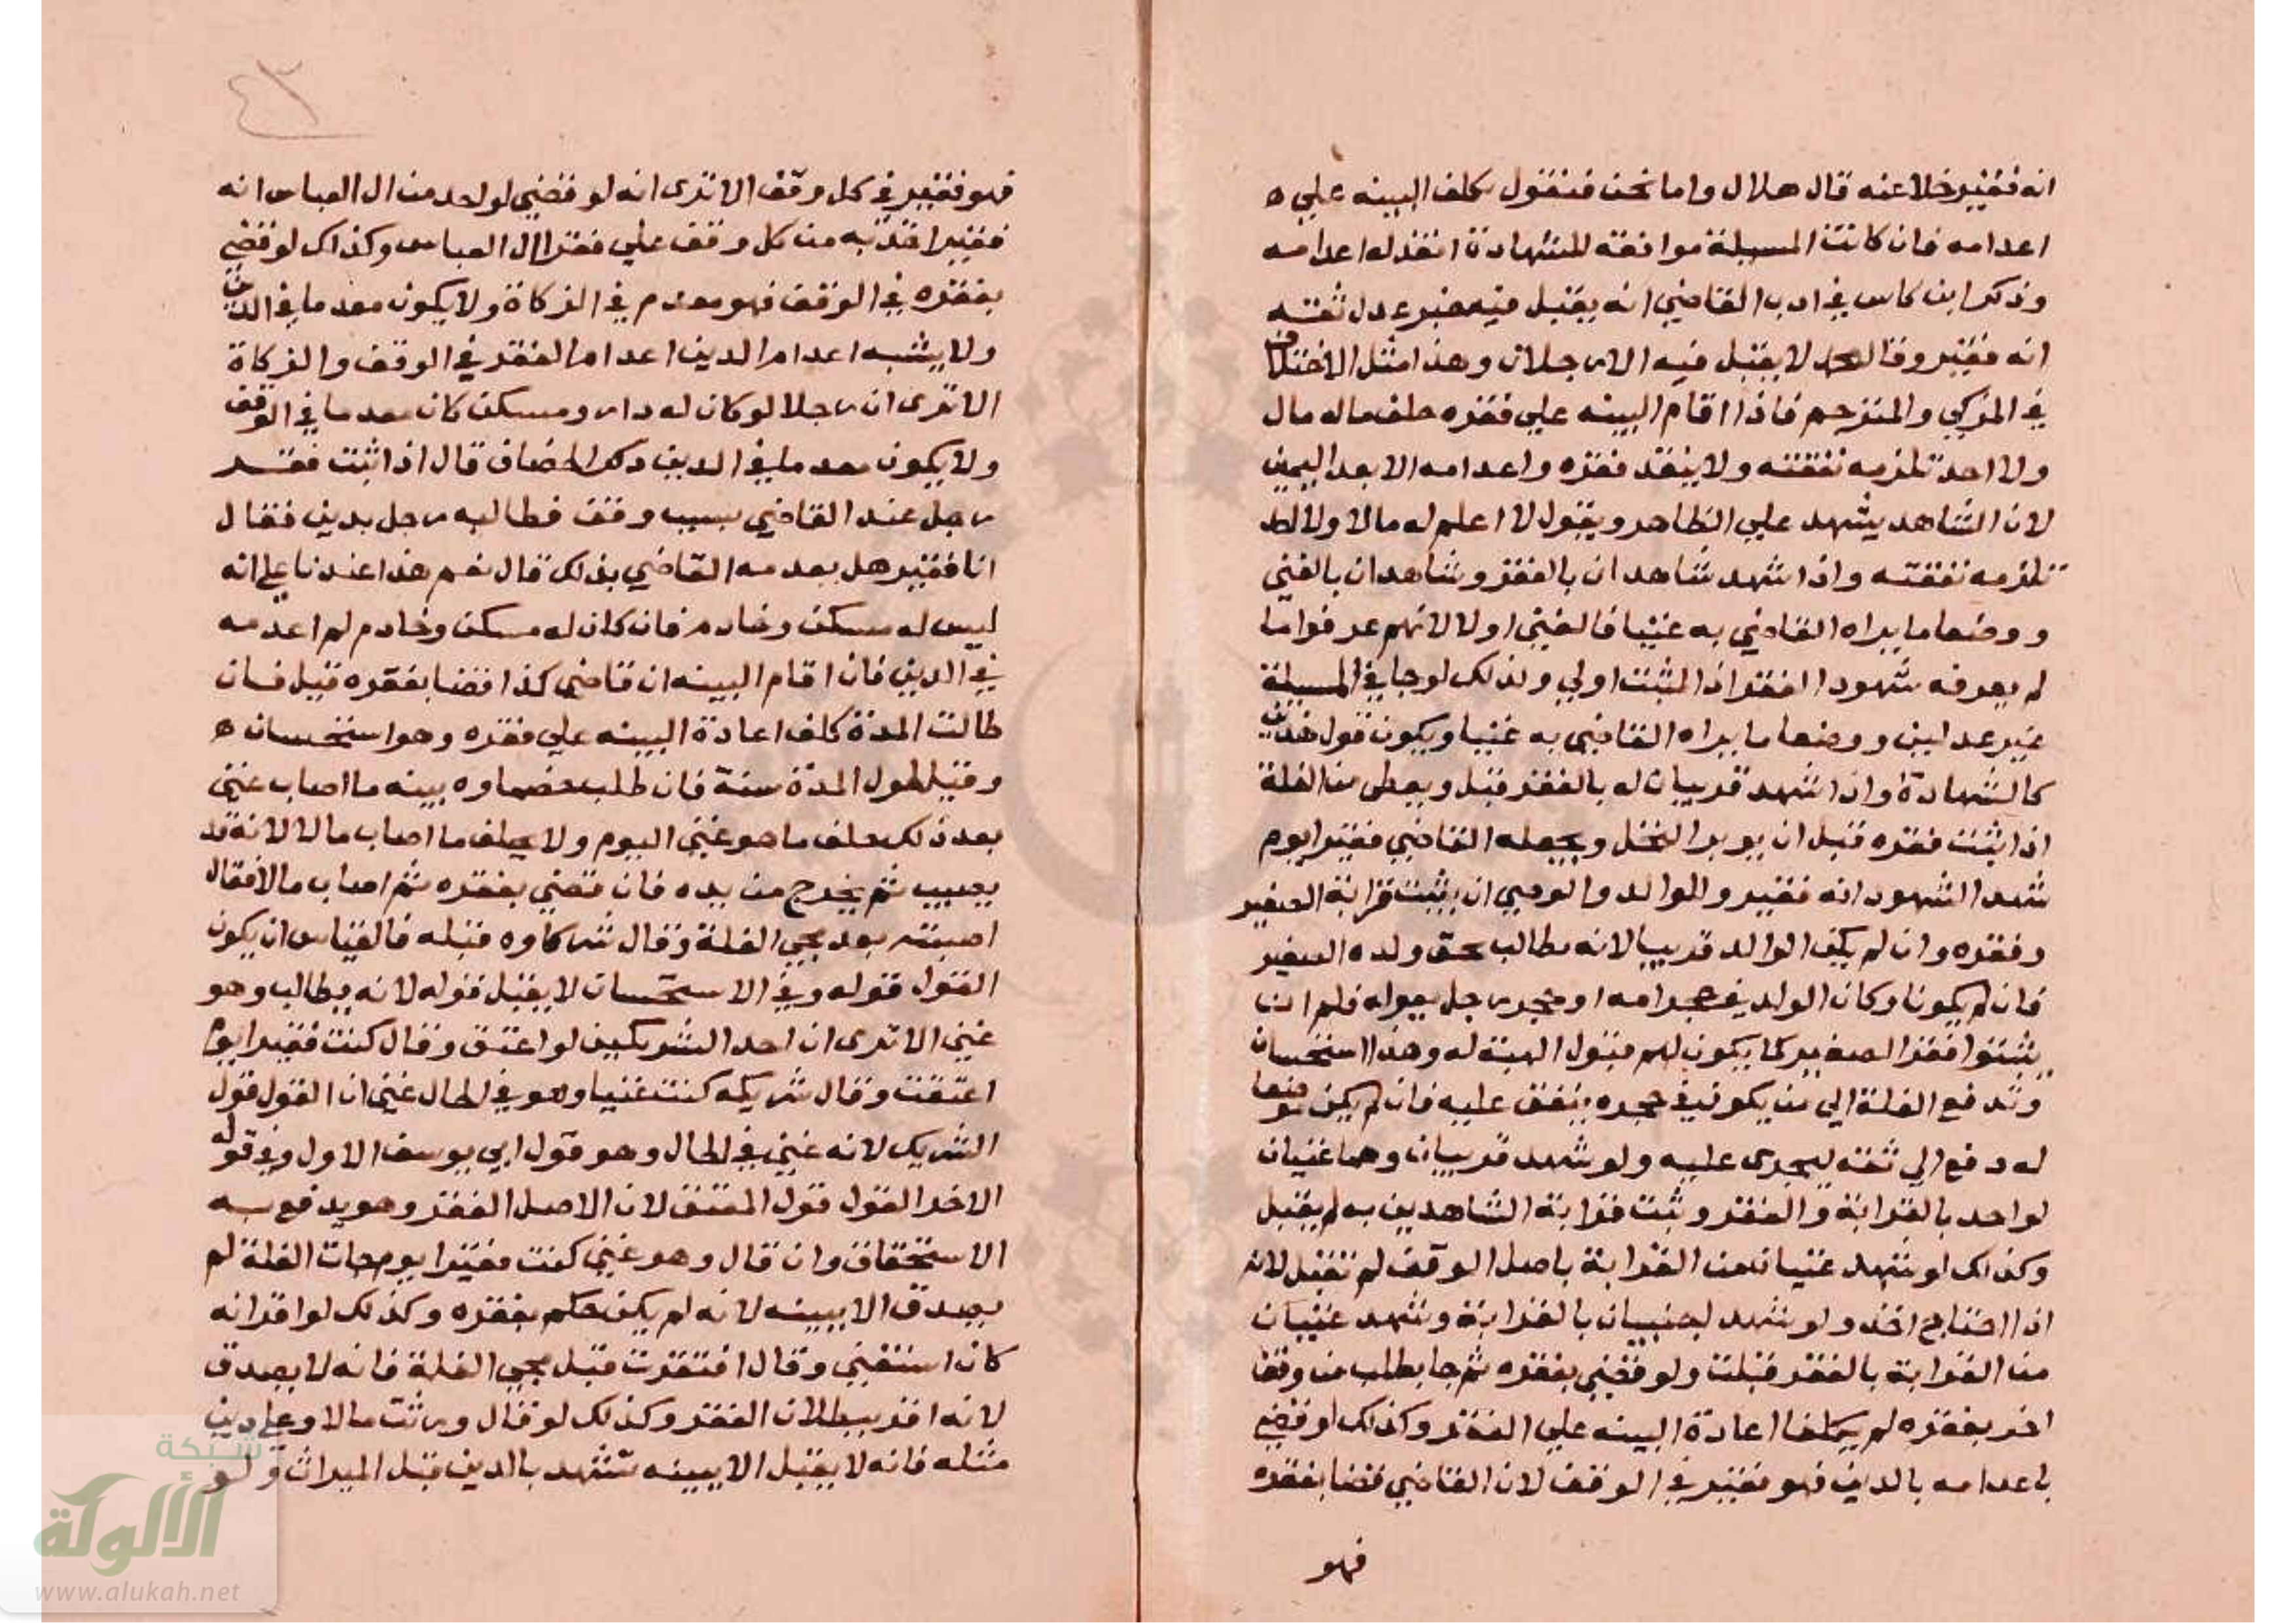 انه فقير خلا عنه قال هلال واما نحن فنقول يكلف البينه علي ه
اعدامه فان كانت المسيلة موافقه للشهادة انفذ له اعدامه
وذكر ابن كاس في ادب القاضي انه يقبل فيه خبر عدل ثقته
انه فقير وقال محمد لا يقبل فيه الا رجلان وهذا مثل الاختلاف
في المزكي والمترجم فاذا اقام البينه علي فقره حلف ماله مال
ولا احد تلزمه نفقته ولا ينفذ فقره واعدامه الا بعد اليمين
لان الشاهد يشهد علي الظاهر ويقول لا اعلم له مالا ولا احد
تلزمه نفقته واذا شهد شاهدان بالفقر وشاهدان بالغني
ووصفا ما يراه القاضي به غنيا فالغني اولا لانهم عرفوا ما
لم يعرفه شهود الفقر اذ المثبت اولي وكذلك لو جا في المسيلة
غير عدلين ووصفا ما يراه القاضي به غنيا ويكون قول هذين
كالشهادة واذا شهد قريبان له بالفقر قبل ويعطى من الغلة
اذا ثبت فقره قبل ان يوبر النخل ويجعله القاضي فقيرا يوم
شهد الشهود انه فقير والوالد والوصي ان يثبت قرابة الصغير
وفقره وان لم يكن الوالد قريبا لانه يطالب بحق ولده الصغير
فان لم يكونا وكان الولد في حجر امه او حجر رجل يعوله فلهم ان
يثبتوا فقر الصغير كما يكون لهم قبول الهبة له وهذا استحسان
وتدفع الغلة الي من يكون في حجره ينفق عليه فان لم يكن موضعا
له دفع الي ثقته ليجرى عليه ولو شهد قريبان وهما غنيان
لواحد بالقرابة والفقر وثبت قرابة الشاهدين به لم يقبل
وكذلك لو شهد غنيان من القرابة باصل الوقف لم تقبل لانه
اذا احتاج اخذ ولو شهد اجنبيان بالقرابة وشهد غنيان
من القرابة بالفقر قبلت ولو قضي بفقره ثم جا يطلب من وقف
اخر بفقره لم يكلف اعادة البينه علي الفقر وكذلك لو قضي
باعدامه بالدين فهو فقير في الوقف لان القاضي قضا بفقره
فهو
٤٣
فهو فقير في كل وقف الا ترى انه لو قضي لواحد من ال العباس انه
فقير اخذ به من كل وقف علي فقرا ال العباس وكذلك لو قضي
بفقره في الوقف فهو معدم في الزكاة ولا يكون معدما في الدين
ولا يشبه اعدام الدين اعدام الفقر في الوقف والزكاة
الا ترى ان رجلا لو كان له دار ومسكن كان معدما في الوقف
ولا يكون معدما في الدين ذكر الخصاف قال اذا ثبت فقر
رجل عند القاضي بسبب وقف فطالبه رجل بدين فقال
انا فقير هل يعدمه القاضي بذلك قال نعم هذا عندنا علي انه
ليس له مسكن وخادم فان كان له مسكن وخادم لم اعدمه
في الدين فان اقام البينه ان قاضي كذا قضا بفقره قبل فان
طالت المدة كلف اعادة البينه علي فقره وهو استحسان ه
وقيل طول المدة سنة فان طلب خصماوه يمينه ما اصاب غني
بعد ذلك حلف ما هو غني اليوم ولا يحلف ما اصاب مالا لانه قد
يصيب ثم يخرج من يده فان قضي بفقره ثم اصاب مالا فقال
اصبته بعد مجي الغلة وقال شركاوه قبله فالقياس ان يكون
القول قوله وفي الاستحسان لا يقبل قوله لانه يطالب وهو
غني الا ترى ان احد الشريكين لو اعتق وقال كنت فقيرا يوم
اعتقت وقال شريكه كنت غنيا وهو في الحال غني ان القول قول
الشريك لانه غني في الحال وهو قول ابي يوسف الاول وفي قوله
الاخر القول قول المعتق لان الاصل الفقر وهو يدفع به
الاستحقاق وان قال وهو غني كنت فقيرا يوم جات الغلة لم
يصدق الا ببينه لانه لم يكن حكم بفقره وكذلك لو اقر انه
كان استغني وقال افتقرت قبل مجي الغلة فانه لا يصدق
لانه اقر ببطلان الفقر وكذلك لو قال ورثت مالا وعلي دين
مثله فانه لا يقبل الا ببينه تشهد بالدين قبل الميراث ولو
شبكة
الألوكة
www.alukah.net